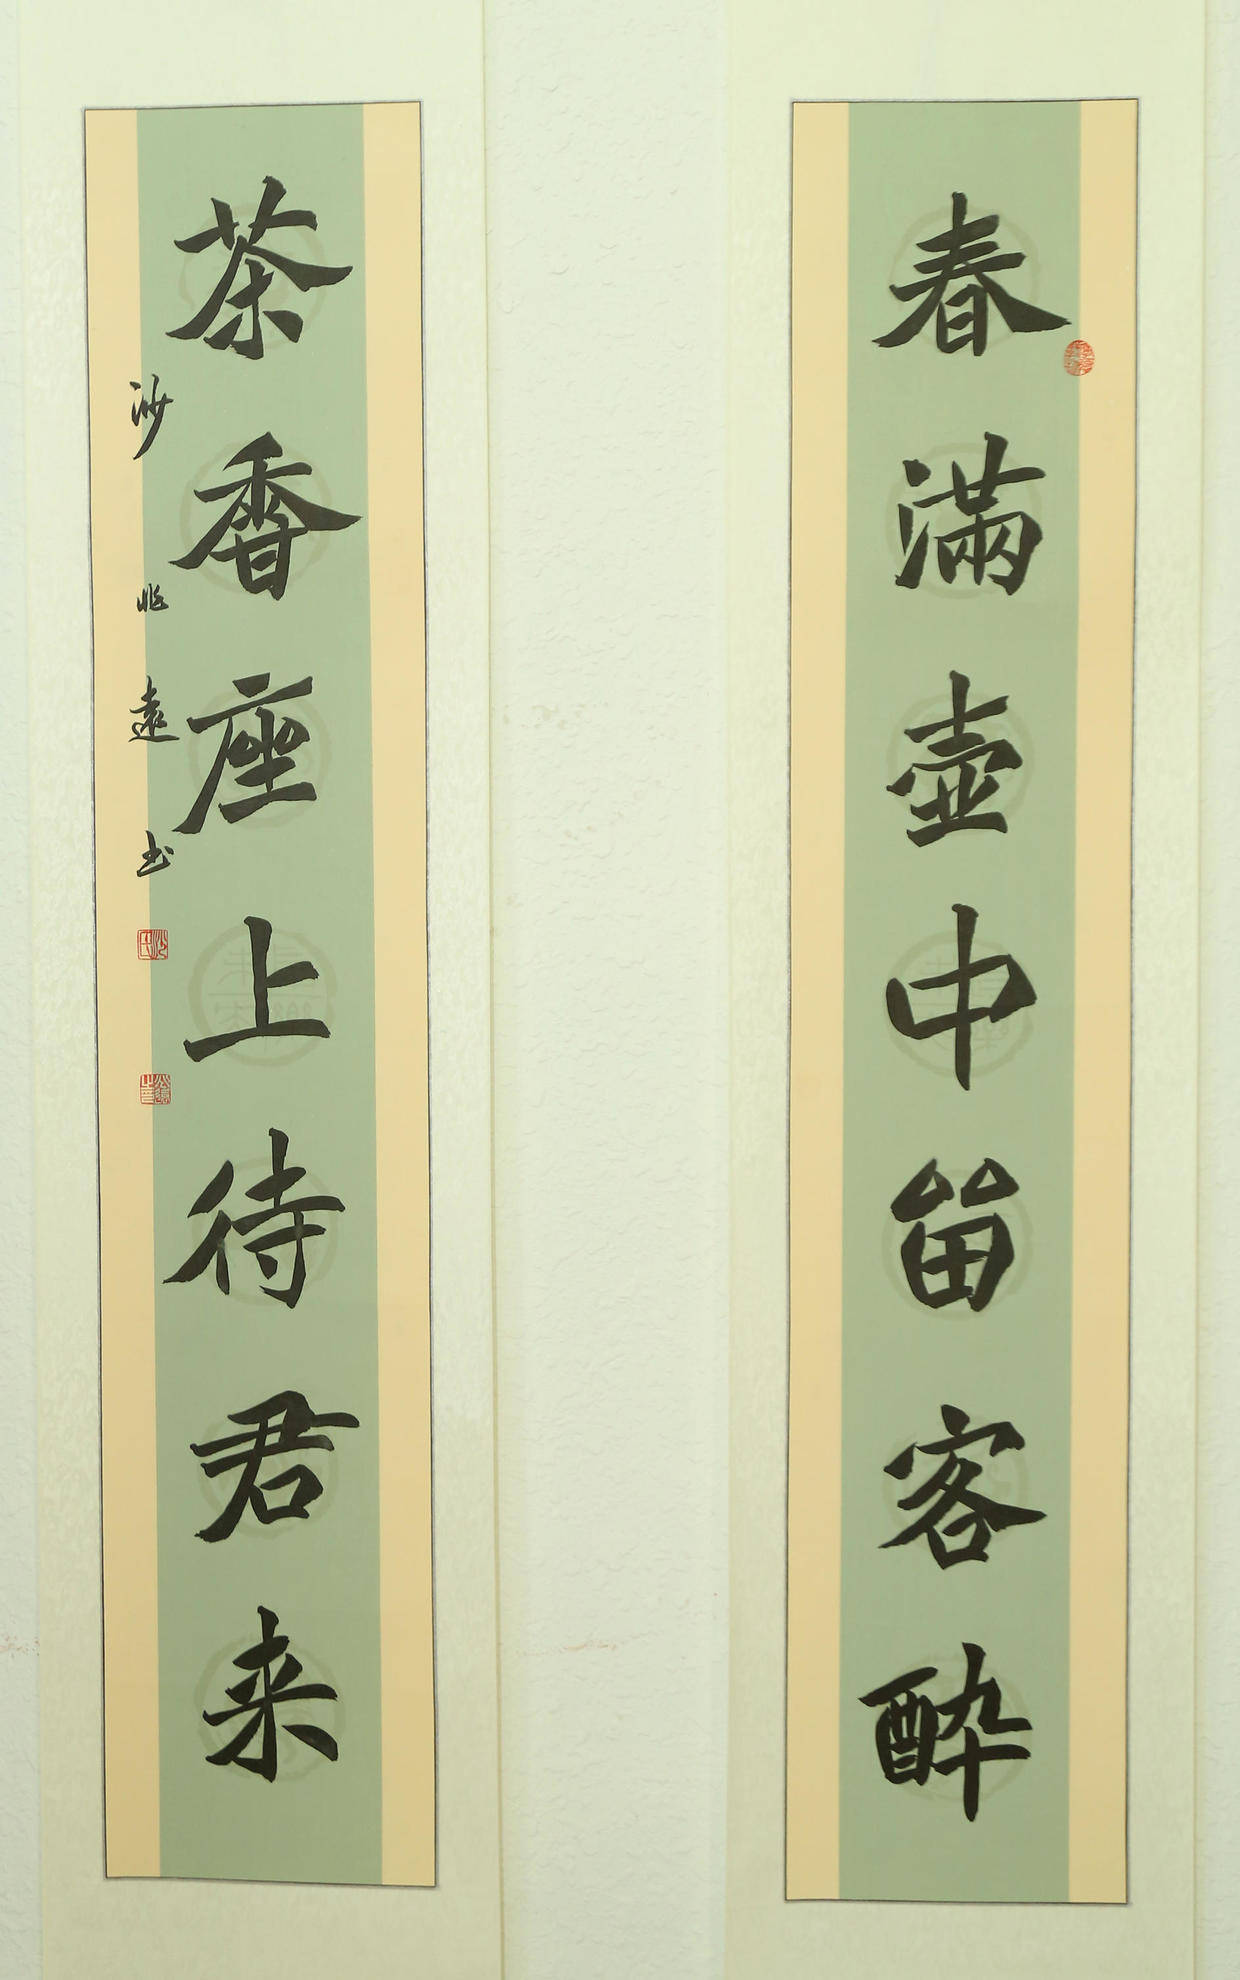 春滿壺中留客醉
茶香座上待君来
沙兆遠书
沙氏